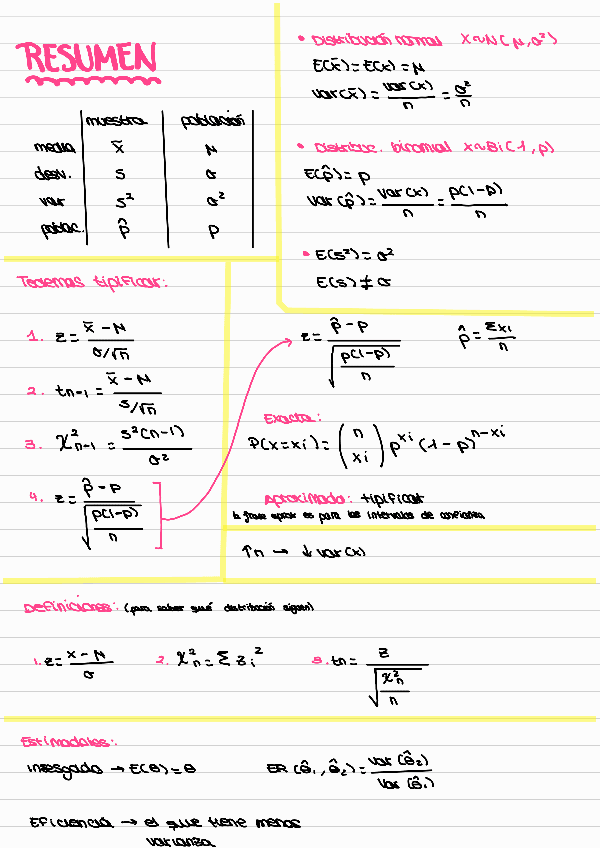 RESUMEN
muestra población
media x̄ μ
desv. s σ
var s² σ²
poblac. p̂ p
• Distribución normal X~N(μ,σ²)
E(x̄)=E(x)=μ
var(x̄)=var(x)/n=σ²/n
• Distribuc. binomial X~Bi(1,p)
E(p̂)=p
var(p̂)=var(x)/n=p(1-p)/n
• E(s²)=σ²
E(s)≠σ
Teoremas tipificar:
1. z=(x̄-μ)/(σ/√n)
2. tn-1=(x̄-μ)/(s/√n)
3. χ²n-1=s²(n-1)/σ²
4. z=(p̂-p)/√(p(1-p)/n)
z=(p̂-p)/√(p(1-p)/n) p̂=Σxi/n
Exacta:
P(X=xi)=(n xi) p^xi (1-p)^n-xi
Aproximada: tipificar
la frase aprox es para los intervalos de confianza
↑n → ↓var(x)
Definiciones: (para saber qué distribución siguen)
1. z=(x-μ)/σ 2. χ²n=Σzi² 3. tn=z/√(χ²n/n)
Estimadores:
insesgado → E(θ)=θ ER(θ̂1,θ̂2)=var(θ̂2)/var(θ̂1)
Eficiencia → el que tiene menos
varianza